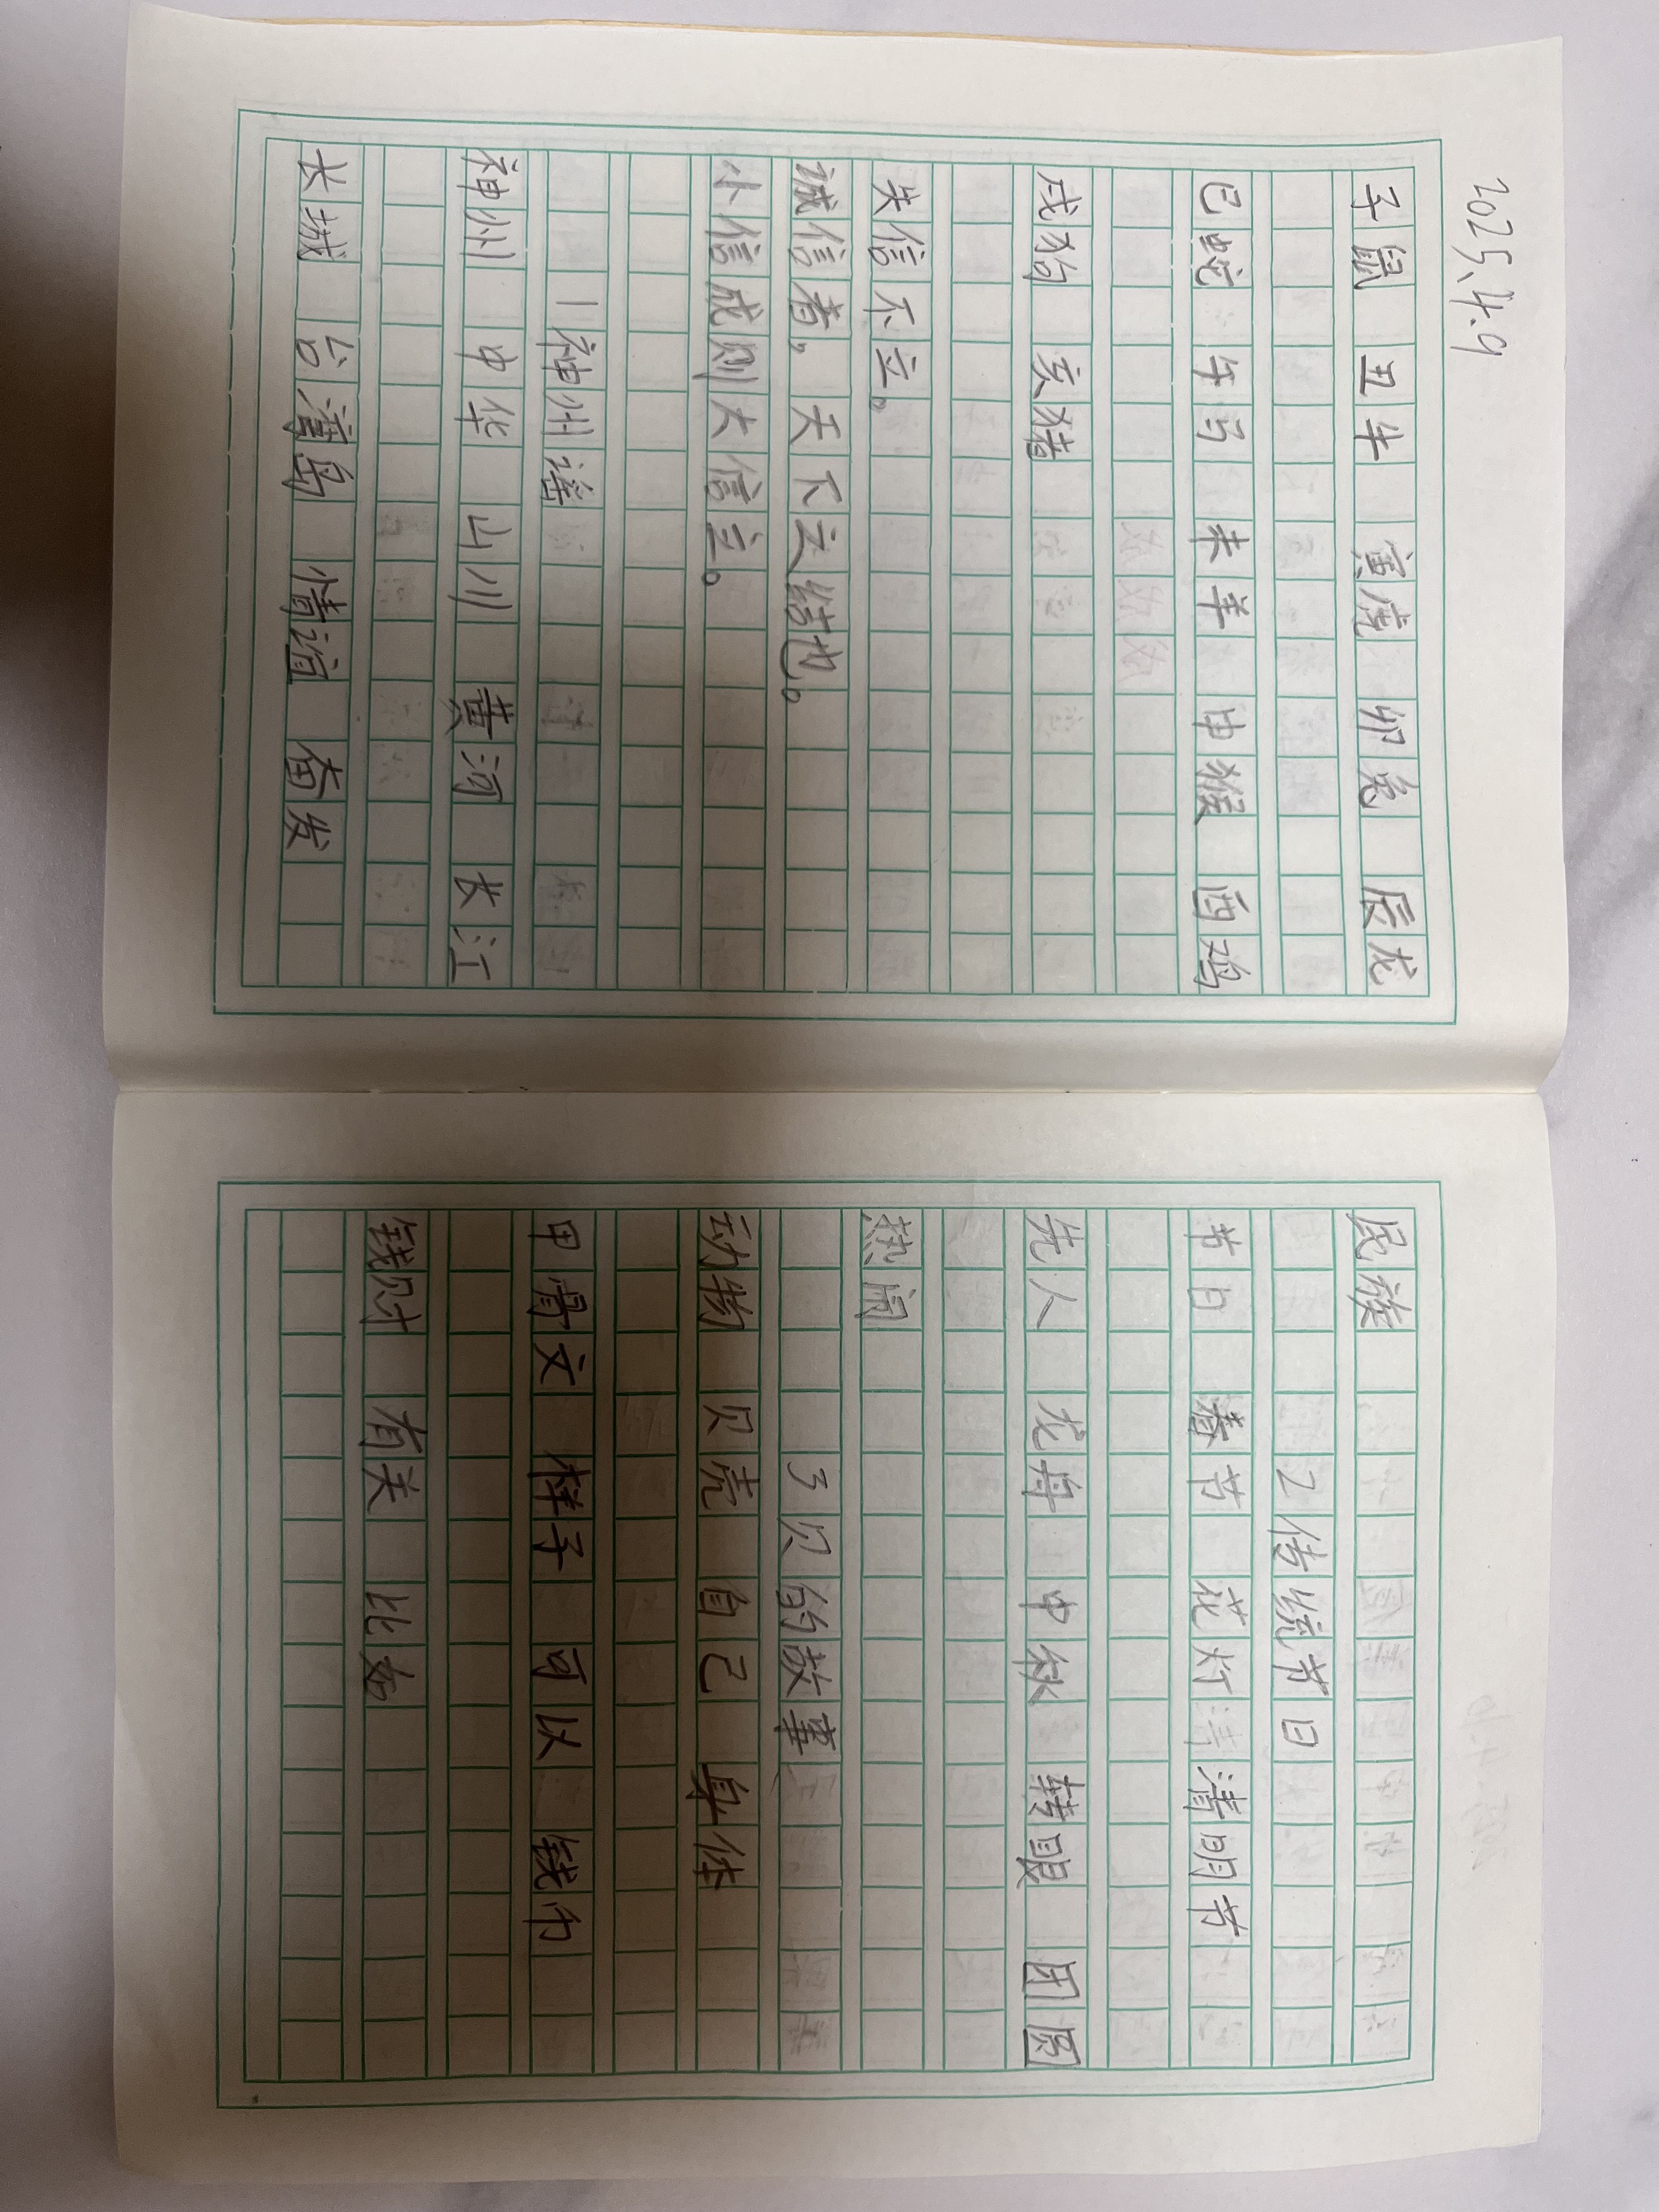 2025.4.9
子鼠 丑牛 寅虎 卯兔 辰龙
巳蛇 午马 未羊 申猴 酉鸡
戌狗 亥猪
失信不立。
诚信者，天下之结也。
小信成则大信立。
1神州谣
神州 中华 山川 黄河 长江
长城 台湾岛 情谊 奋发
民族
2传统节日
节日 春节 花灯 清明节
先人 龙舟 中秋 转眼 团圆
热闹
3贝的故事
动物 贝壳 自己 身体
甲骨文 样子 可以 钱币
钱财 有关 比如